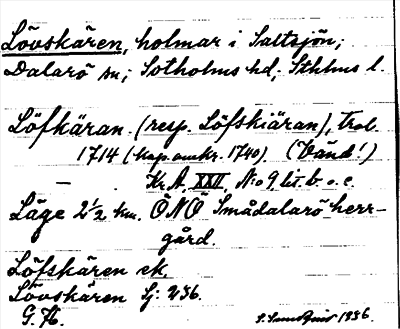 Lövskären, holmar i Saltsjön;
Dalarö sn; Sotholms hd; Sthlms l.
Löfkäran. (resp. Löfskiäran), trol.
1714 (kop. omkr. 1740). (Vänd!)
— Kr. A. XXII, No 9 lit. b. o. c.
Läge 2½ km. ÖNÖ Smådalarö herr-
gård.
Löfskären ek.
Lövskären Sj: 236.
G. A.
1936